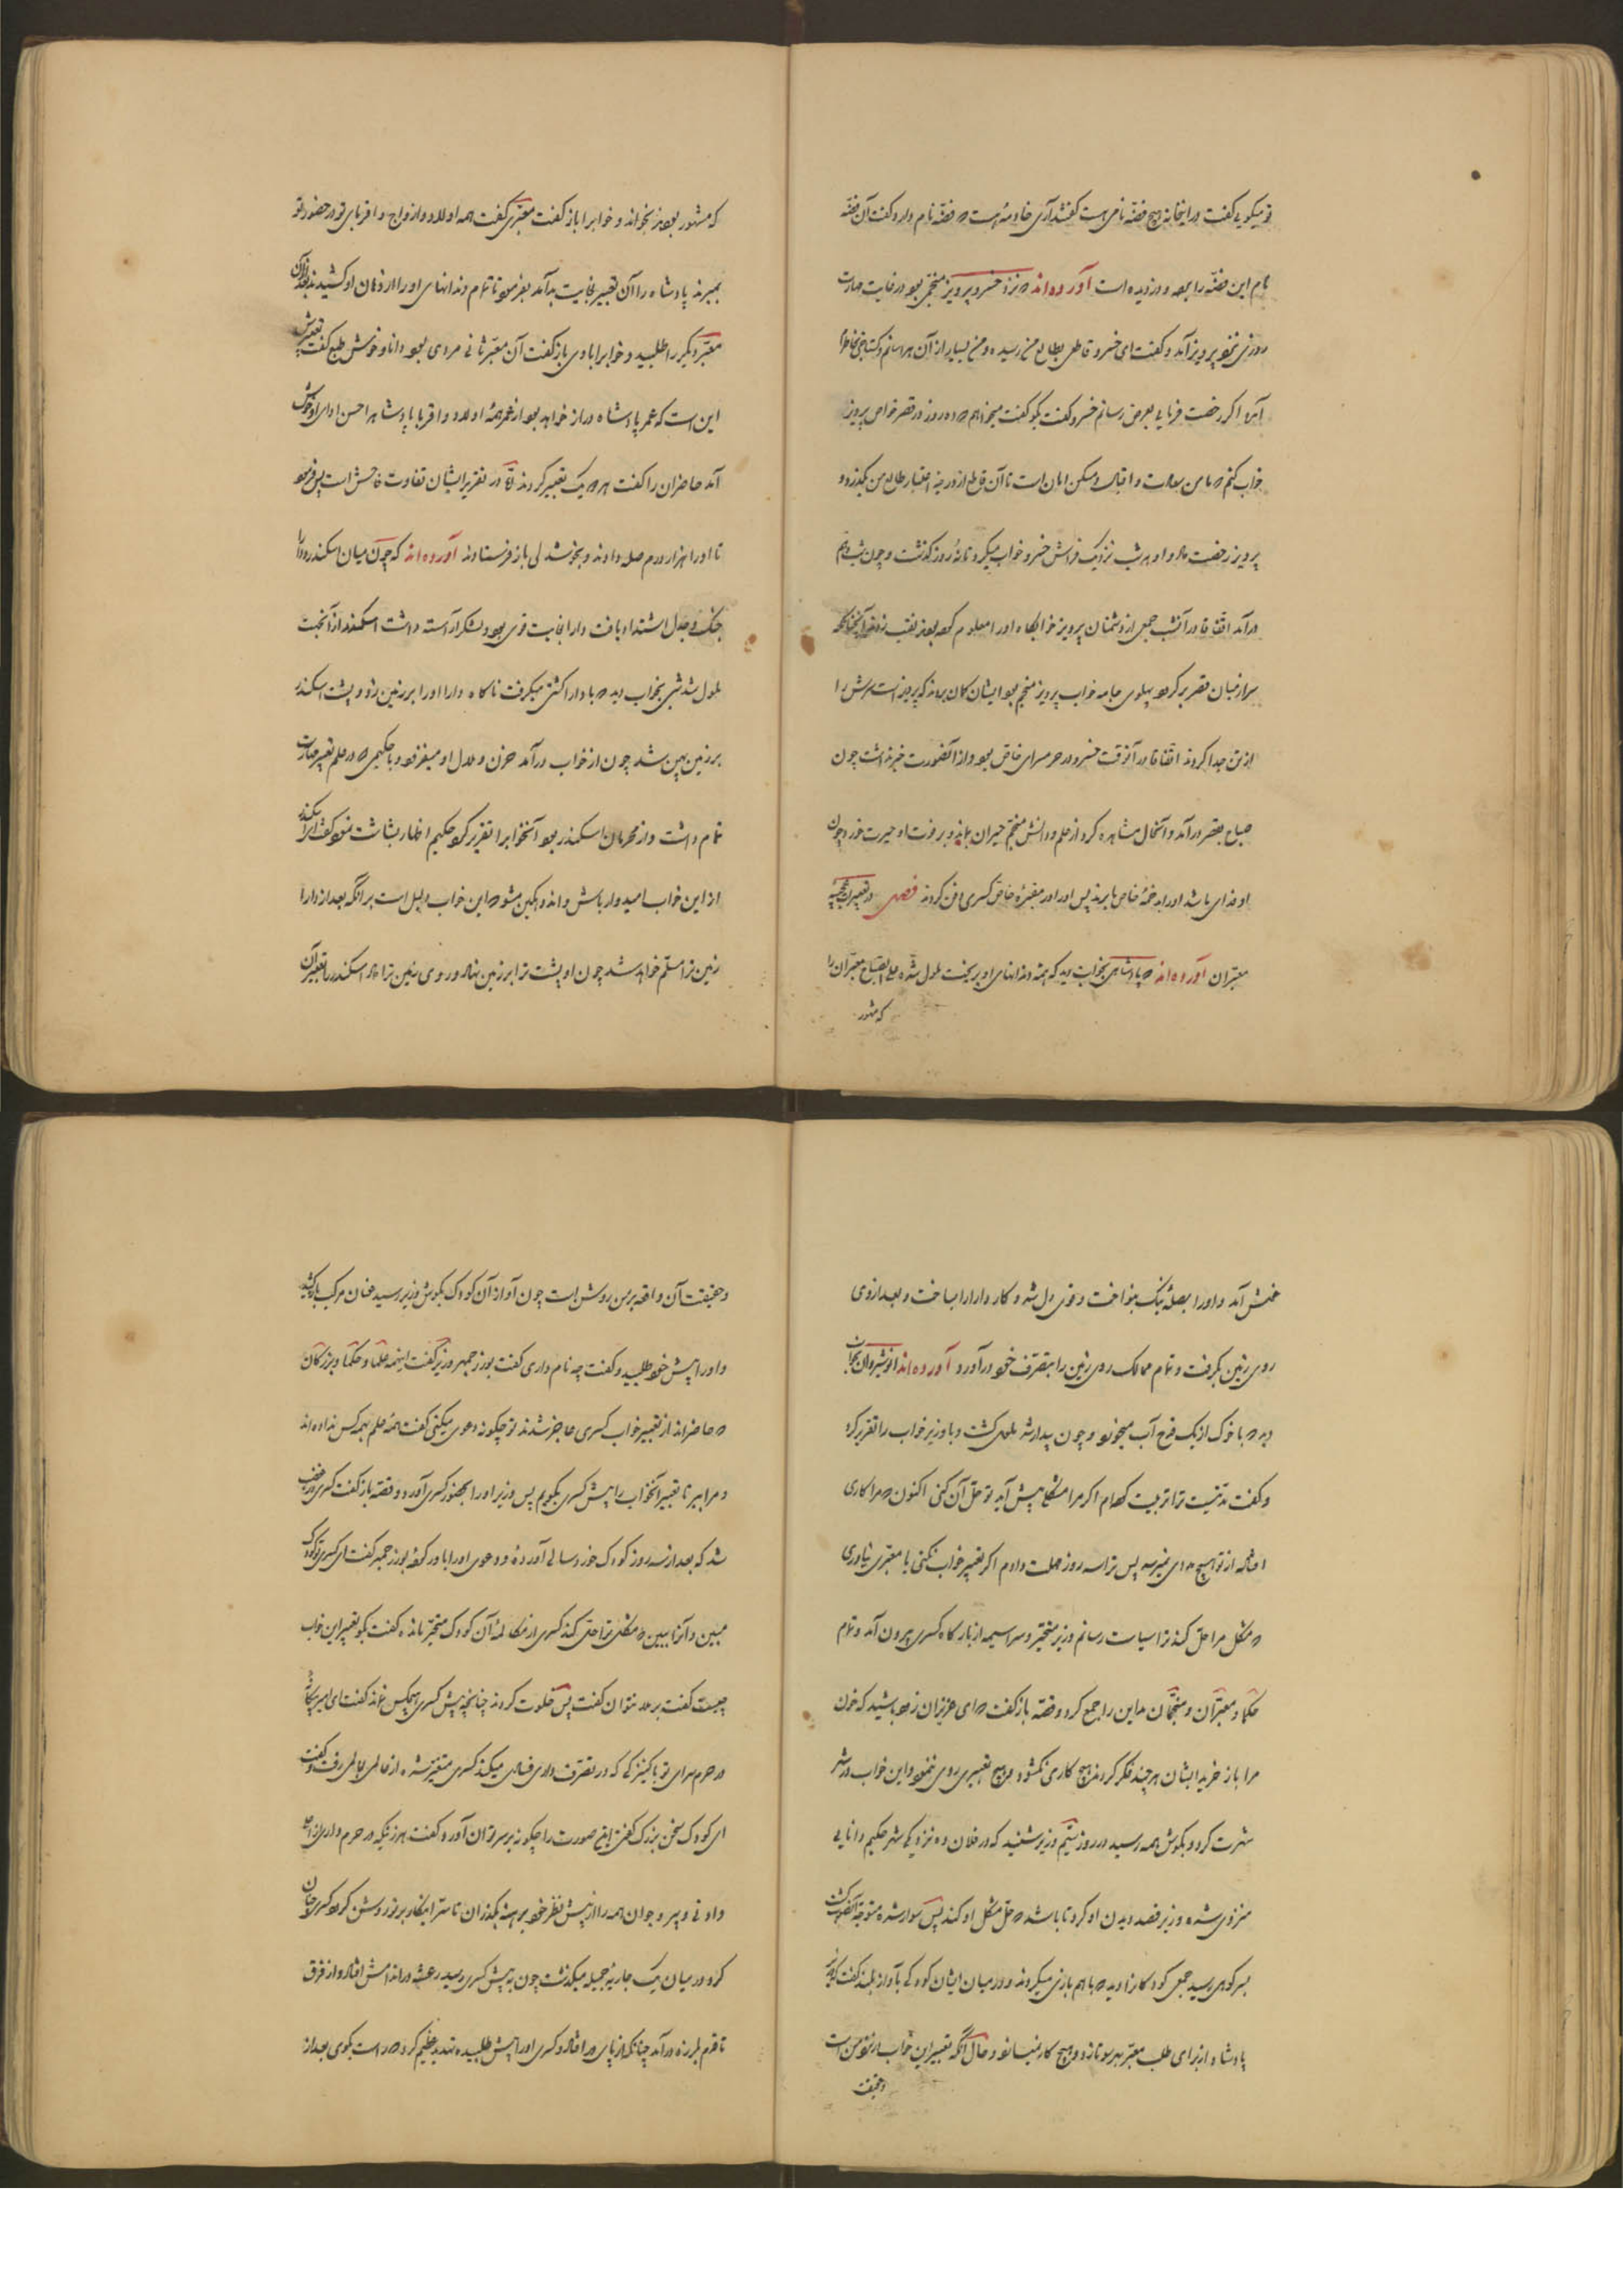 تو میکویی گفت در اینخانه هیچ فضه نامی هست گفتند آری خادمهٔ هست که فضه نام دارد گفت آن فضه
نام این فضه را برده و دزدیده است آورده‌اند که نزد خسرو پرویز منجمی بود در غایت مهارت
روزی نزد پرویز آمد و گفت ای خسرو قاطعی بطالع من رسیده و من بسیار از آن هراسانم
اگر رخصت فرمایی بعرض رسانم خسرو گفت بگو گفت میخواهم که ده روز در قصر خاص پرویز
خواب کنم که مامن سعادت و اقبال و مسکن امان است تا آن قاطع از درجهٔ اعتبار طالع من بگذرد
پرویز رخصت داد و او هر شب نزدیک فراش خسرو خواب میکرد تا نه روز گذشت و چون شب دهم
درآمد اتفاقا در آنشب جمعی از دشمنان پرویز خوابگاه او را معلوم کرده بودند نقب زدند
سر از میان قصر بر کرده پهلوی جامه خواب پرویز منجم بود ایشان گمان بردند که پرویز است سرش را
از تن جدا کردند اتفاقا در آنوقت خسرو در حرمسرای خاص بود و از آنصورت خبر نداشت چون
صباح بقصر درآمد و آنحال مشاهده کرد از علم و دانش منجم حیران بماند و بر فوت او حیرت خورد چون
او فدای ما شد او را بدخمهٔ خاص ما برند پس او را در مقبرهٔ خاص کسری دفن کردند فصل در تعبیرات عجیبه
معبران آورده‌اند که پادشاهی بخواب دید که همه دندانهای او بریخت ملول شده علی الصباح معبران را
که مشهور
که مشهور بودند بخواند و خواب را باز گفت معبری گفت همه اولاد و ازواج و اقربای تو در حضور تو
بمیرند پادشاه را آن تعبیر بغایت بد آمد بفرمود تا تمام دندانهای او را از دهان او کشیدند بعد از آن
معبر دیگر را طلبید و خواب را با وی باز گفت آن معبر ثانی مردی بود دانا و خوش طبع گفت تعبیرش
این است که عمر پادشاه دراز خواهد بود از عمر همهٔ اولاد و اقربا پادشاه را حسن ادای او خوش
آمد حاضران را گفت هر دو یک تعبیر کردند اما در تقریر ایشان تفاوت فاحش است پس فرمود
تا او را هزار درم صله دادند و بخوشدلی باز فرستادند آورده‌اند که چون میان اسکندر و دارا
جنگ و جدل اشتداد یافت دارا بغایت قوی بود و لشکر آراسته داشت اسکندر از آنجهت
ملول شد شبی بخواب دید که با دارا کشتی میگرفت ناگاه دارا او را بر زمین زد و پشت اسکندر
بر زمین پهن شد چون از خواب درآمد حزن و ملال او میفزود و با حکیمی که در علم تعبیر مهارت
تمام داشت و از محرمان اسکندر بود آنخواب را تقریر کرد حکیم اظهار بشاشت نمود گفت ای اسکندر
از این خواب امیدوار باش و اندوهگین مشو که این خواب دلیل است بر آنکه بعد از دارا
زمین ترا مسلم خواهد شد چون او پشت ترا بر زمین نهاد و روی زمین ترا داد اسکندر را تعبیر آن
خوش آمد و او را بصلهٔ نیک بنواخت و قوی دل شد و کار دارا را بساخت و بعد از وی
روی زمین بگرفت و تمام ممالک روی زمین را متصرف خود درآورد آورده‌اند انوشیروان بخواب
دید که با خوک از یک قدح آب میخورد و چون بیدار شد ملول گشت و با وزیر خواب را تقریر کرد
و گفت مدتیست ترا تربیت کرده‌ام اگر مرا مشکلی پیش آید تو حل آن کنی اکنون که مرا کاری
افتاد از تو هیچ مدای نمیرسد پس ترا سه روز مهلت دادم اگر تعبیر خواب نکنی یا معبری نیاوری
که مشکل مرا حل کند ترا سیاست رسانم وزیر متحیر و سراسیمه از بارگاه کسری بیرون آمد و تمام
حکما و معبران و منجمان مداین را جمع کرد و قصه باز گفت که ای عزیزان زود باشید که خون
مرا باز خرید ایشان هر چند فکر کردند هیچ کاری نگشود و هیچ تعبیری روی ننمود و این خواب در شهر
شهرت کرد و بگوش همه رسید در روز سیم وزیر شنید که در فلان ده نزدیکی شهر حکیم دانایی
منزوی شده وزیر قصد دیدن او کرد تا باشد که حل مشکل او کند پس سوار شده متوجه آنصوب گشت
بسر کوهی رسید جمعی کودکان را دید که با هم بازی میکردند و در میان ایشان کودکی بآواز بلند گفت که
پادشاه از برای طلب معبر هر سو تازد و هیچ کار نمیسازد و حال آنکه تعبیر این خواب نزد من است
و حقیقت
و حقیقت آن واقعه بر من روشن است چون آواز آن کودک بگوش وزیر رسید عنان مرکب باز کشید
و او را پیش خود طلبید و گفت چه نام داری گفت بوزرجمهر وزیر گفت اینهمه علما و حکما و بزرگان
که حاضراند از تعبیر خواب کسری عاجز شدند تو چگونه دعوی میکنی گفت همهٔ علم بهمه کس نداده‌اند
و مرا ببر تا تعبیر آنخواب را پیش کسری بگویم پس وزیر او را بحضور کسری آورد و قصه باز گفت کسری در غضب
شد که بعد از سه روز کودک خورد سالی آوردهٔ و دعوی او را باور کردهٔ بوزرجمهر گفت ای کسری تو کودک
مبین و آنرا ببین که مشکل ترا حل کند کسری از مکالمهٔ آن کودک متحیر بمانده گفت بگو تعبیر این خواب
چیست گفت بر ملا نتوان گفت پس خلوت کردند چنانچه پیش کسری هیچکس نماند گفت ای امیر بیگانهٔ
در حرمسرای تو با کنیزکی که در تصرف داری فساد میکند کسری متغیر شده از حالی بحالی رفت و گفت
ای کودک سخن بزرگ گفتی این صورت را چگونه بر سر توان آورد گفت هر زنیکه در حرم داری از اعلی
و ادنی و پیر و جوان همه را از پیش نظر خود برهنه بگذران تا سر اینکار بر تو روشن گردد کسری چنان
کرد در میان یک جاریهٔ جمیله میگذشت چون به پیش کسری رسید رعشه در اندامش افتاد و از فرق
تا قدم بلرزه درآمد چنانکه از پای در افتاد و کسری او را پیش طلبیده تهدید عظیم کرد که راست بگوی بعد از